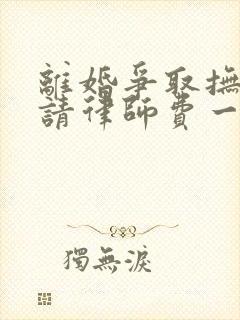 離婚爭取撫
請律師費一
獨無淚